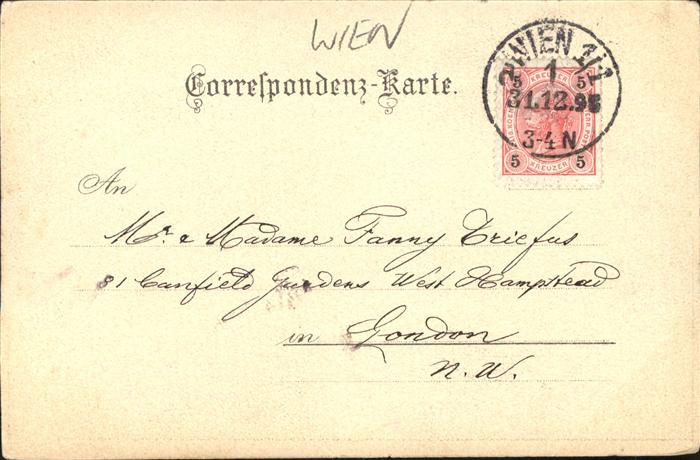 WIEN
Correſpondenz-Karte.
WIEN 1/1
1
31.12.95
3-4 N
5 KREUZER 5
5 KREUZER 5
An
Mr. & Madame Fanny Triefus
81 Canfield Gardens West Hampstead
in London
N.W.